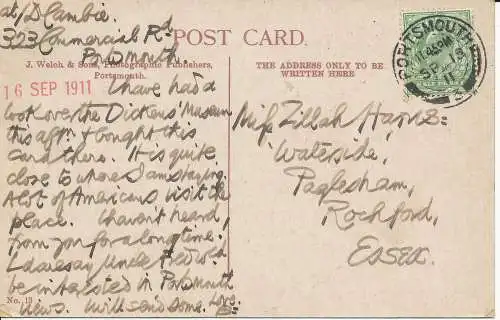 at/D Cambie.
323 Commercial Rd
Portsmouth
POST CARD.
J. Welch & Sons, Photographic Publishers,
Portsmouth.
THE ADDRESS ONLY TO BE
WRITTEN HERE
PORTSMOUTH
SP 15
11
16 SEP 1911
I have had a
look over the Dickens' Museum
this aftn & bought this
card there. It is quite
close to where I am staying.
A lot of Americans visit the
place. I haven't heard
from you for a long time.
I daresay Uncle Fred wd
be interested in Portsmouth
views. Will send some. Love
Miss Zillah Harris
Waterside,
Paglesham,
Rochford,
Essex.
No. 13